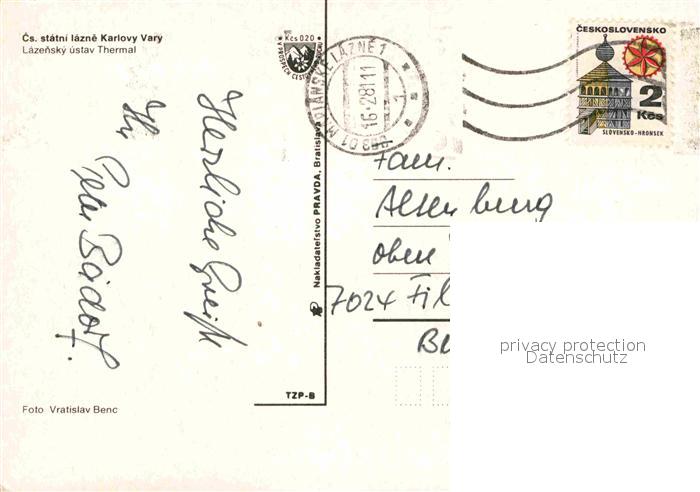 Čs. státní lázně Karlovy Vary
Lázeňský ústav Thermal
Kčs 0.20
MARIÁNSKÉ LÁZNĚ 1
16.-2.81 11
1
ČESKOSLOVENSKO
2
Kčs
SLOVENSKO-HRONSEK
Herzliche Grüße
Ihr Peter
Nakladateľstvo PRAVDA, Bratislava
Fam.
Altenburg
oben
7024 Fil
privacy protection
Datenschutz
TZP-B
Foto Vratislav Benc